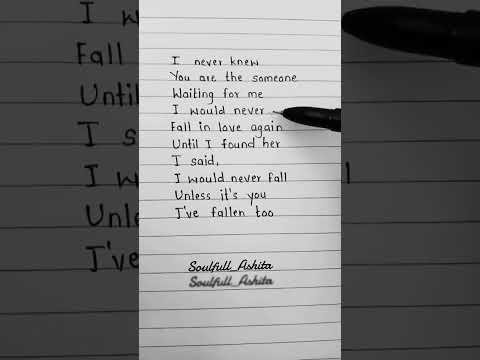 I never knew
You are the someone
Waiting for me
I would never
Fall in love again
Until I found her
I said,
I would never fall
Unless it's you
I've fallen too
Soulfull_Ashita
Soulfull_Ashita